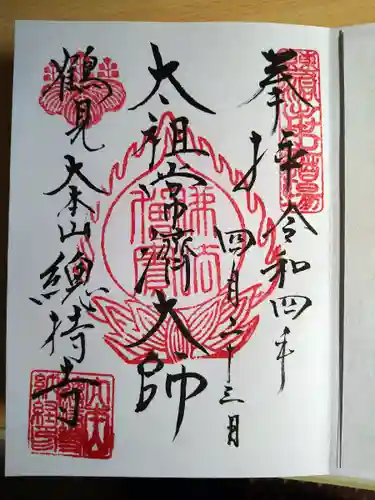 奉拝
令和四年
四月二十三日
太祖常濟大師
鶴見
大本山
總持寺